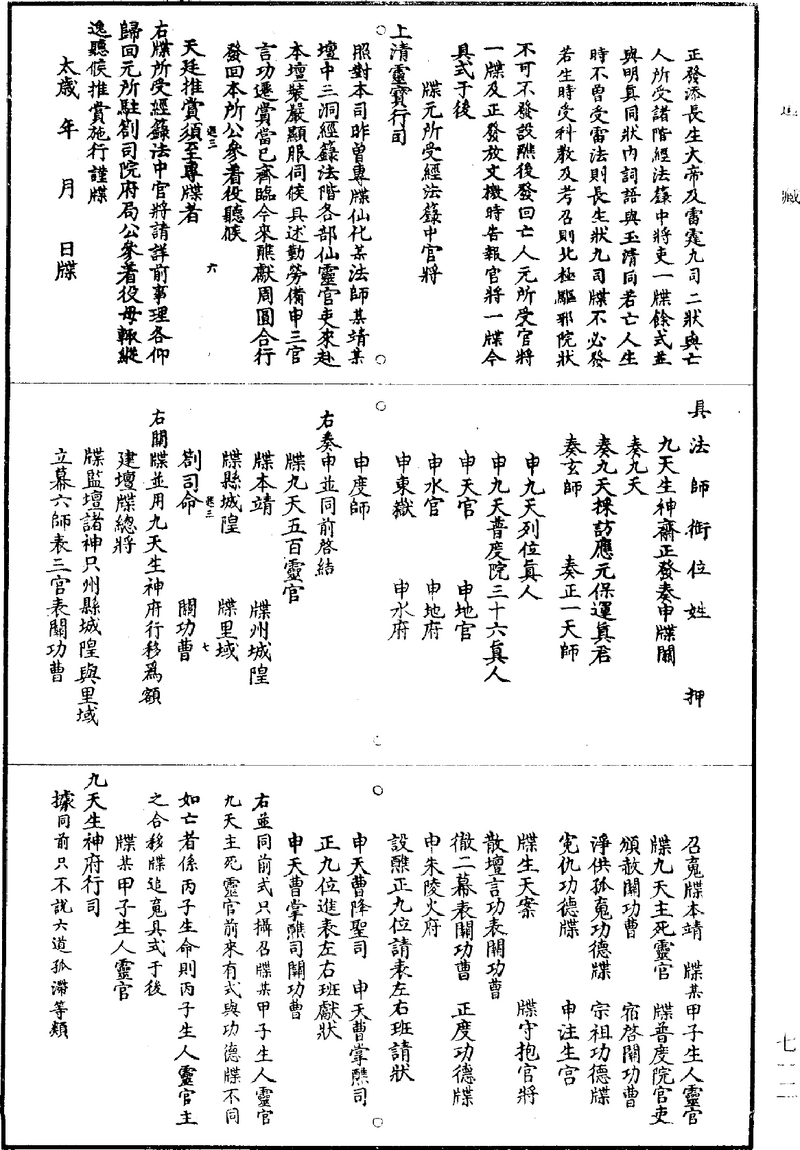 道藏
正發添長生大帝及雷霆九司二狀與亡
人所受諸階經法籙中將吏一牒餘式並
與明真同狀內詞語與玉清同若亡人生
時不曾受雷法則長生狀九司牒不必發
若生時受科教及考召則北極驅邪院狀
不可不發設醮後發回亡人元所受官將
一牒及正發放文檄時告報官將一牒今
具式于後
牒元所受經法籙中官將
上清靈寶行司
照對本司昨曾專牒仙化某法師某靖某
壇中三洞經籙法階各部仙靈官吏來赴
本壇裝嚴顯服伺候具述勤勞備申三官
言功遷賞當已齊臨今來醮獻周圓合行
發回本所公參着役聽候
天廷推賞須至專牒者
右牒所受經籙法中官將請詳前事理各仰
歸回元所駐劄司院府局公參着役毋輒縱
逸聽候推賞施行謹牒
太歲 年 月 日牒
六
具法師銜位姓 押
九天生神齋正發奏申牒關
奏九天
奏九天採訪應元保運真君
奏玄師 奏正一天師
申九天列位真人
申九天普度院三十六真人
申天官 申地官
申水官 申地府
申東嶽 申水府
申度師
右奏申並同前啓結
牒九天五百靈官
牒本靖 牒州城隍
牒縣城隍 牒里域
劄司命 關功曹
七
右關牒並用九天生神府行移爲額
建壇牒總將
牒監壇諸神只州縣城隍與里域
立幕六師表三官表關功曹
召魂牒本靖 牒某甲子生人靈官
牒九天主死靈官 牒普度院官吏
頒赦關功曹 宿啓關功曹
淨供孤魂功德牒 宗祖功德牒
冤仇功德牒 申注生宮
牒生天案 牒守抱官將
散壇言功表關功曹
徹二幕表關功曹 正度功德牒
申朱陵火府
設醮正九位請表左右班請狀
申天曹降聖司 申天曹掌醮司
正九位進表左右班獻狀
申天曹掌醮司關功曹
右並同前式只攝召牒某甲子生人靈官
九天主死靈官前來有式與功德牒不同
如亡者係丙子生命則丙子生人靈官主
之合移牒追魂具式于後
牒某甲子生人靈官
九天生神府行司
據同前只不說六道孤滯等類